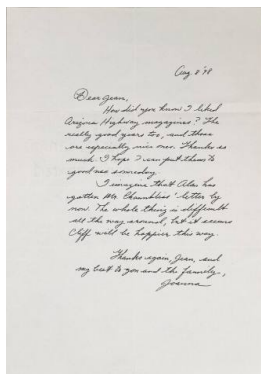 Aug 2 '98
Dear Jean,
How did you know I liked
Arizona Highway magazines? The
really good years too, and these
are especially nice ones. Thanks so
much. I hope I can put them to
good use someday.
I imagine that Alan has
gotten Mr. Chambliss' letter by
now. The whole thing is difficult
all the way around, but it seems
Cliff will be happier this way.
Thanks again, Jean, and
my best to you and the family,
Joanna